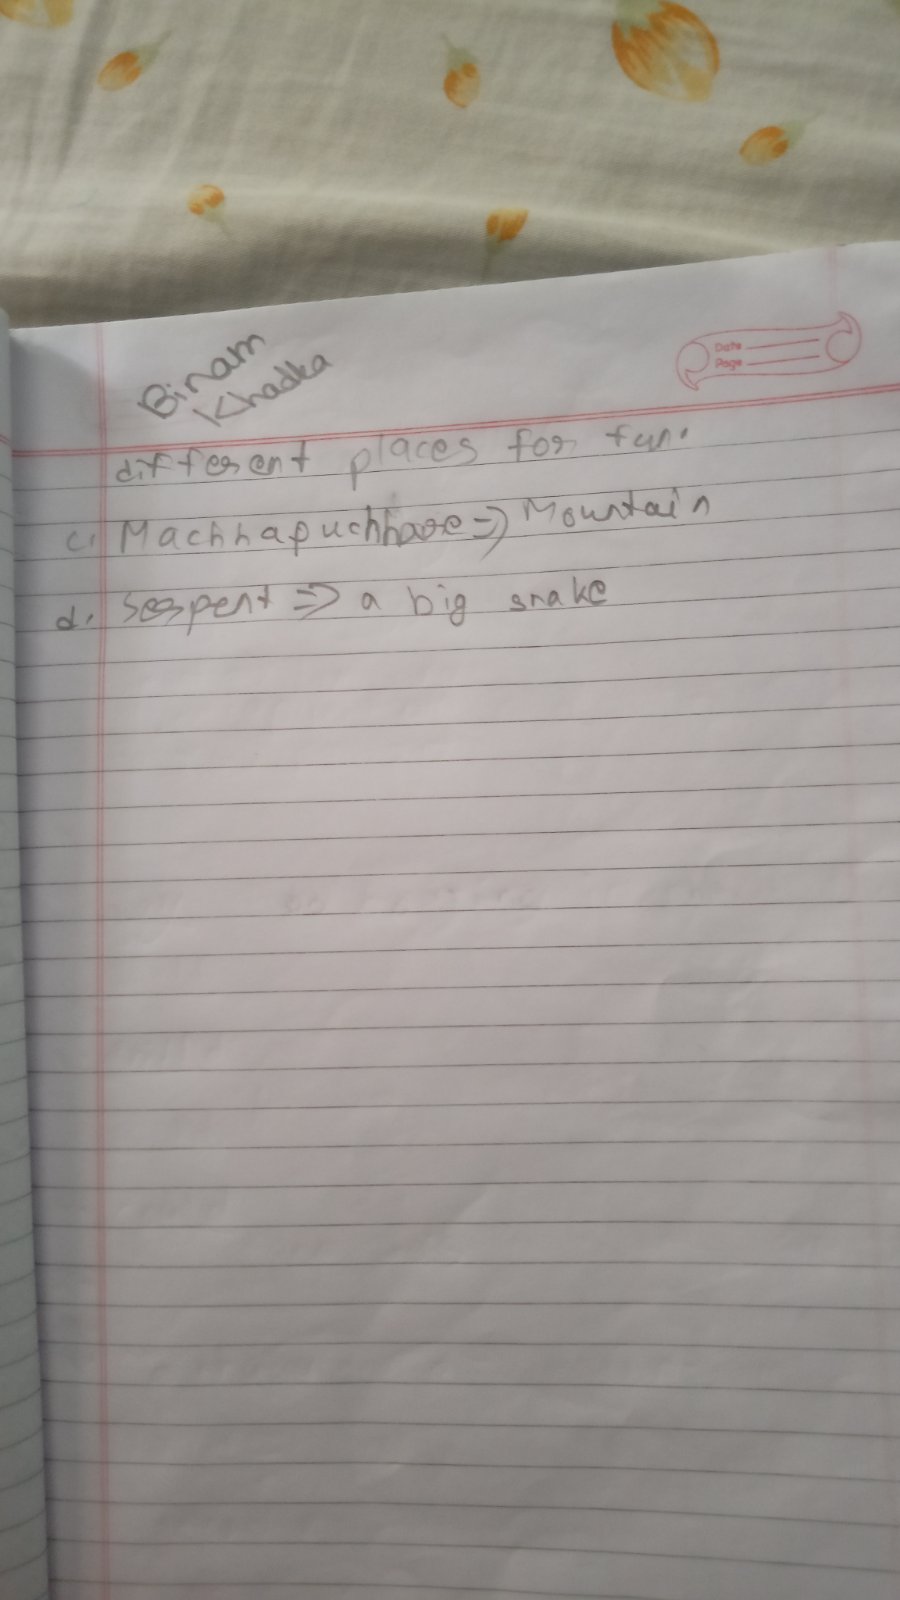 Binam
Khadka
Date
Page
different places for fun.
c. Machhapuchhare => Mountain
d. Serpent => a big snake